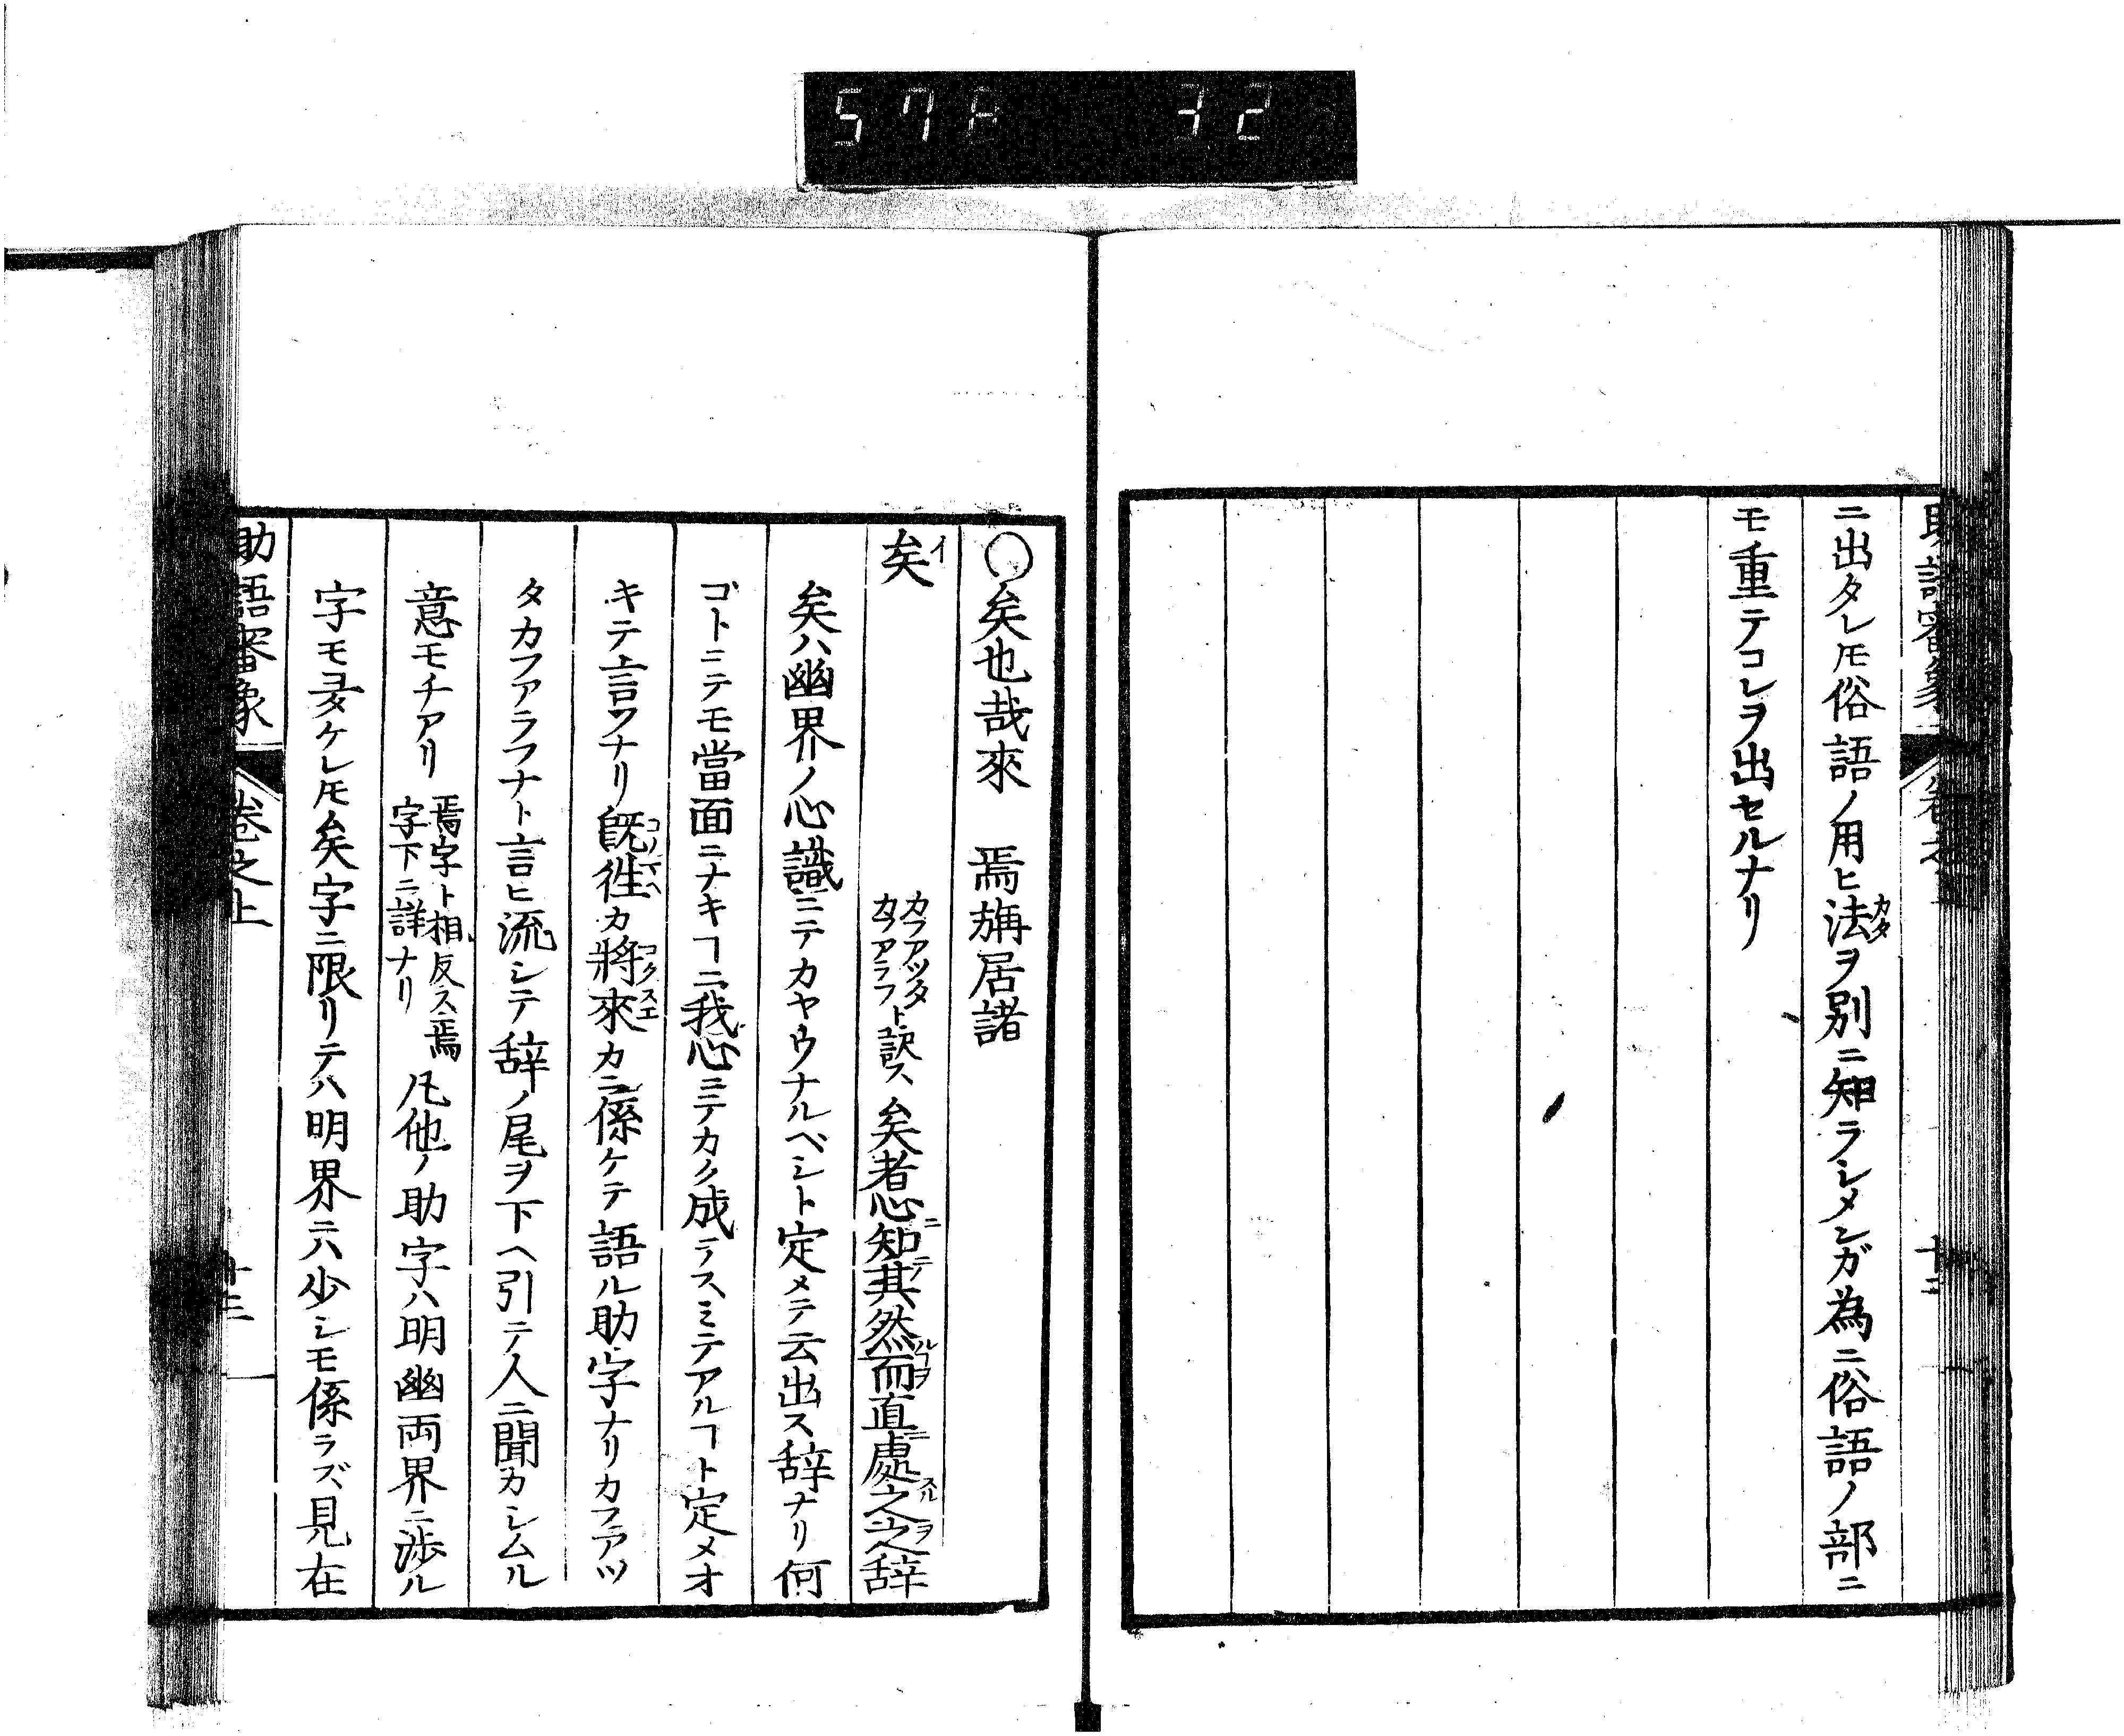 ニ出タレ𪜈俗語ノ用ヒ法カタヲ別ニ知ラシメンガ為ニ俗語ノ部ニ
モ重テコレヲ出セルナリ
〇矣也哉來 焉旃居諸
矣イ カフアツタカフアラフト訳ス 矣者心ニ知テ其然ルヿヲ而直ニ處スル之ヲ之辞
矣ハ幽界ノ心識ニテカヤウナルベシト定メテ云出ス辞ナリ何
ゴトニテモ當面ニナキヿニ我心ニテカク成テスミテアルヿト定メオ
キテ言ツナリ既徃カ將來カニ係ケテ語ル助字ナリカフアツ
タカフアラフナト言ヒ流シテ辞ノ尾ヲ下ヘ引テ人ニ聞カシムル
意モチアリ 焉字ト相反ス焉字下ニ詳ナリ 凡他ノ助字ハ明幽両界ニ渉ル
字モ多ケレ𪜈矣字ニ限リテハ明界ニハ少シモ係ラズ見在
助語審象 卷之上